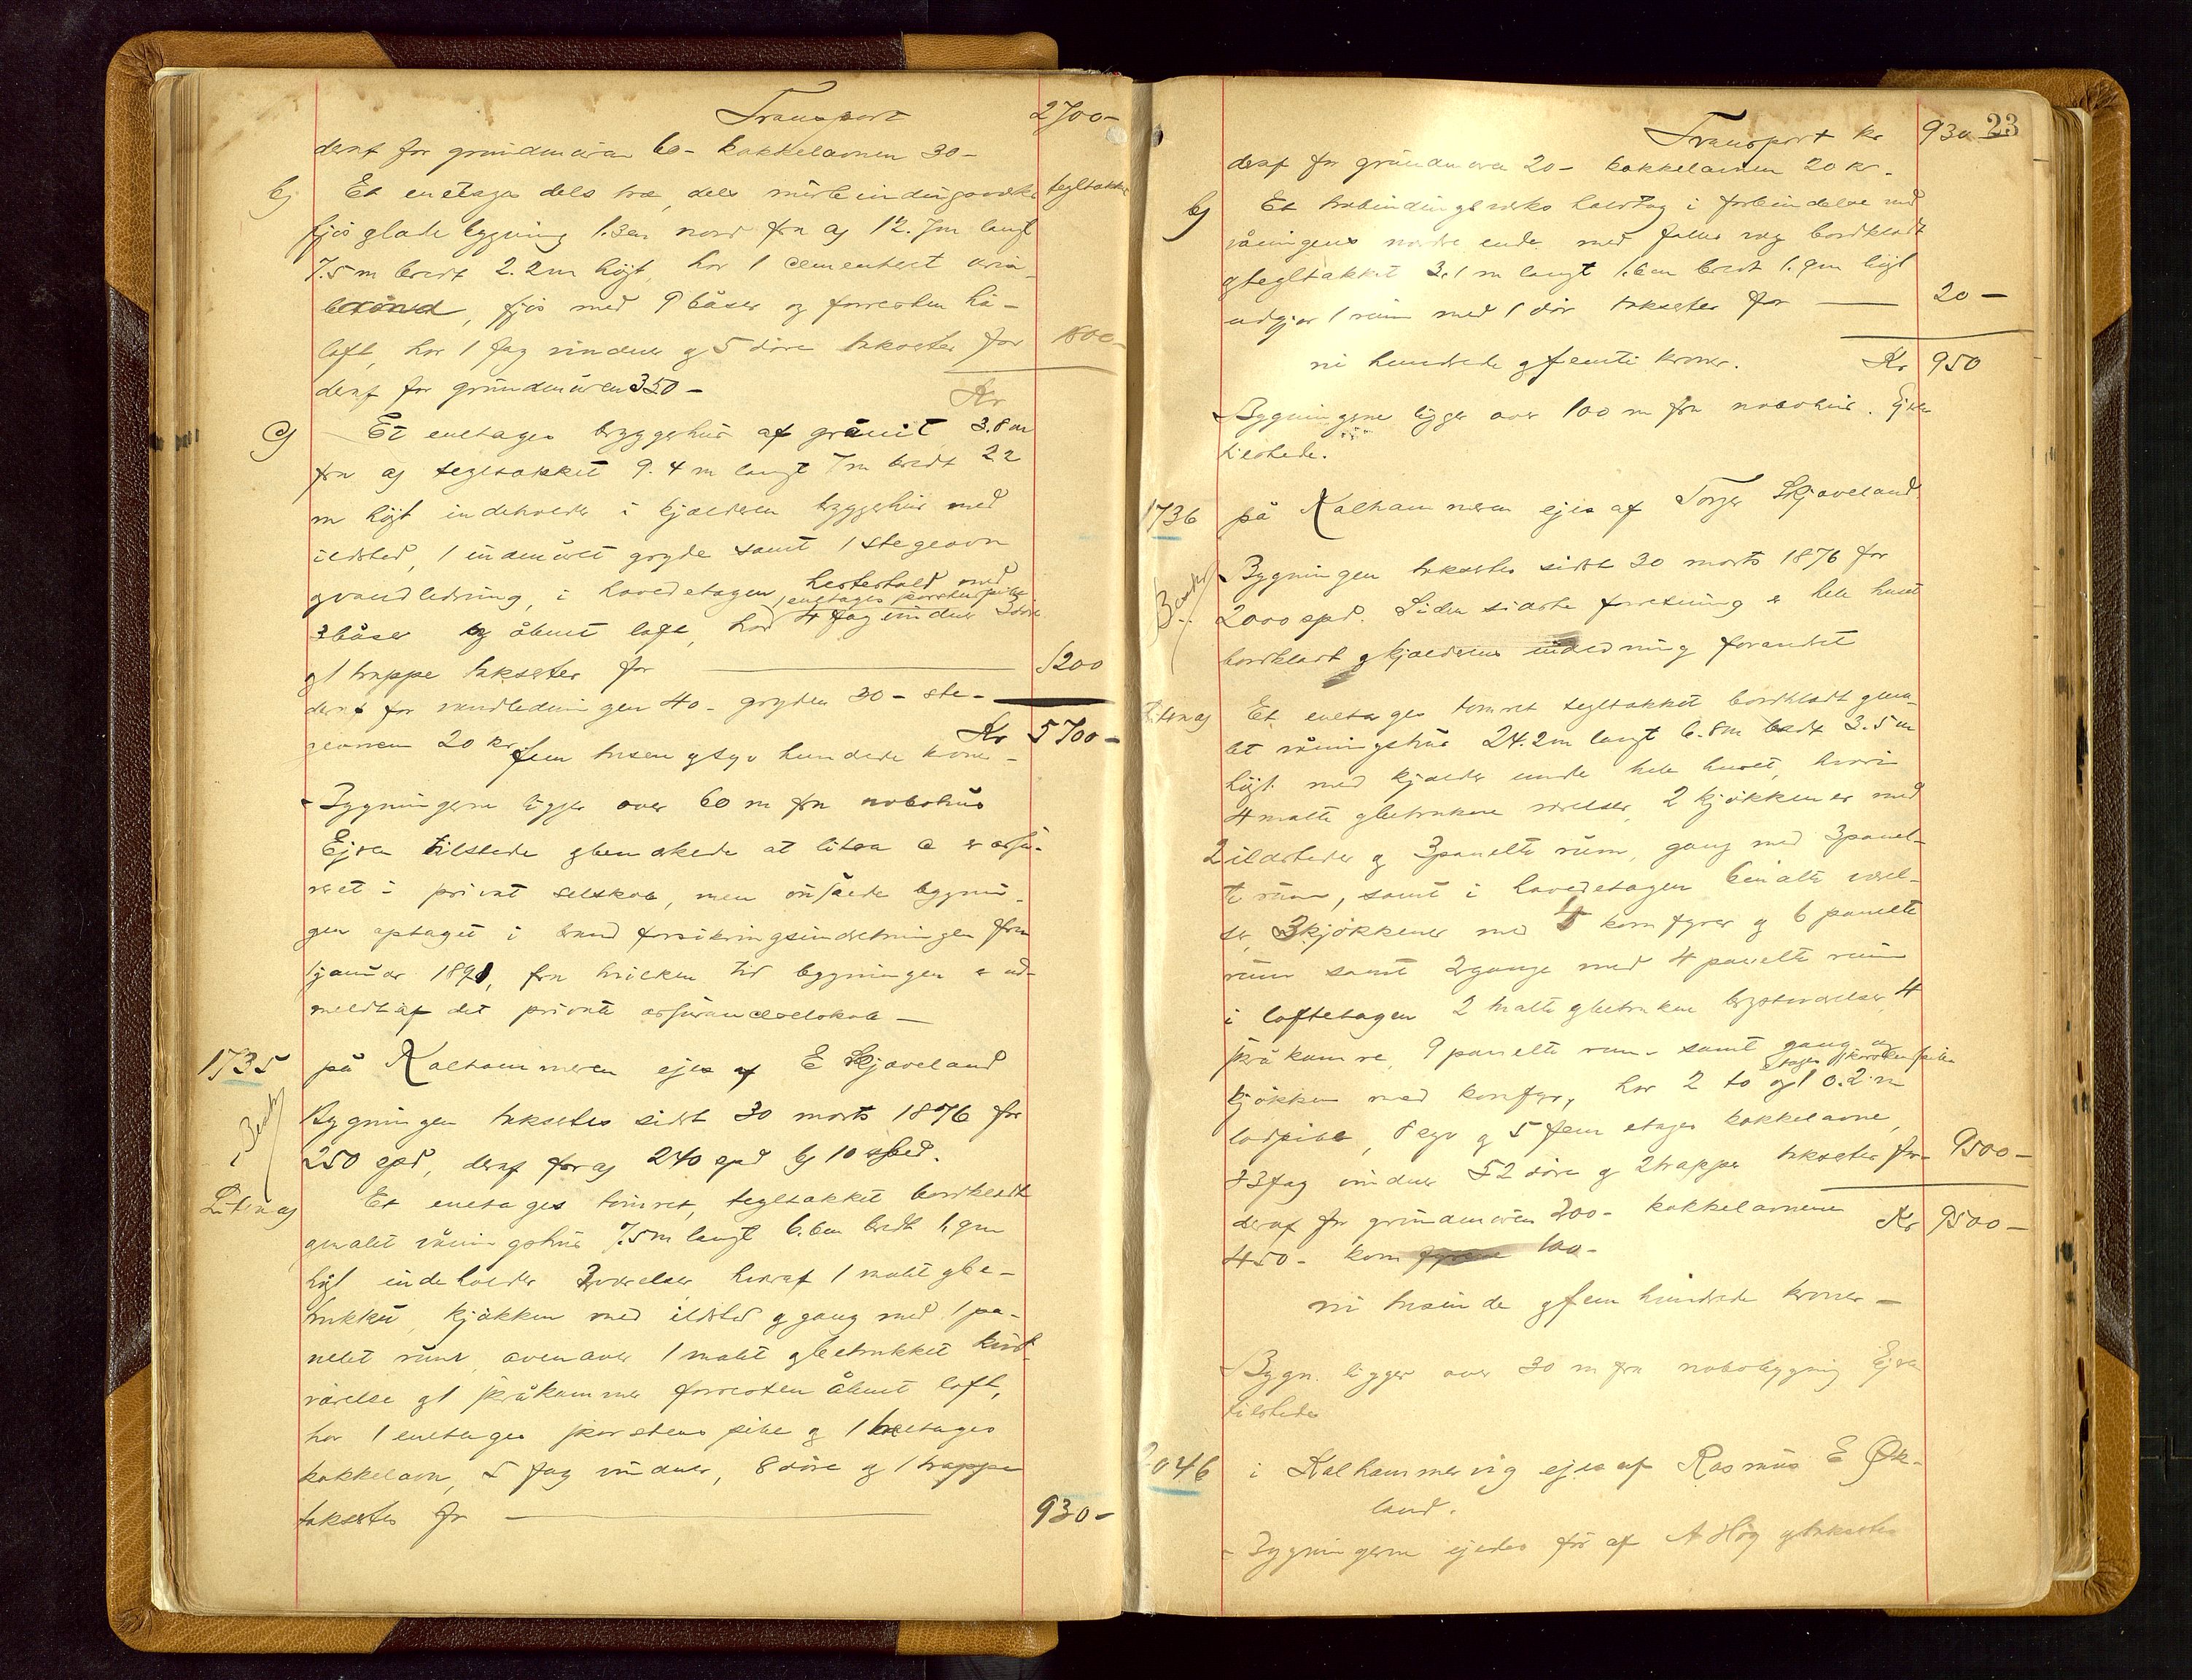 Transport 2700-
deraf for grundmuren 60- kakkelovnen 30-
b) Et enetages dels træ, dels murbindingsværks tegltakket
fjøs & lade bygning 1.3m nord fra a) 12.7m langt
7.5m bredt 2.2m høit, har 1 cementeret urin-
brønd, fjøs med 9 båser og forresten hø-
loft, har 1 fag vinduer og 5 døre takseret for 1800-
deraf for grundmuren 350- Kr
c) Et enetages bryggerhus af granit 3.8m
fra a) tegltakket 9.4m langt 7m bredt 2.2
m høit indeholder i kjælderen bryggerhus med
ildsted, 1 indmuret gryde samt 1 stegeovn
& vandledning, i hovedetagen hestestald med
1 enetages skorstenspibe
3 båser og åbent loft, har 4 fag vinduer 3 døre
og 1 trappe takseret for 1200
deraf for vandledningen 40- gryden 30- ste-
geovnen 20 kr. Kr 5700-
fem tusen og syv hundrede kroner-
Bygningerne ligger over 60 m fra nabohus
Ejeren tilstede & bemærkede at litra a er assu-
reret i privat selskab, men ønskede bygnin-
gen optaget i brandforsikringsindretningen fra
1 januar 1891, fra hvilken tid bygningen er ud-
meldt af det private assuranceselskab-
1735 på Kalhammeren ejes af E Skjæveland
Bygningen takseredes sidst 30 marts 1876 for
250 spd, deraf for a) 240 spd b) 10 spd.
Litra a) Et enetages tømret, tegltakket bordklædt
& malet våningshus 7.5m langt 6.6m bredt 1.9m
høit indeholder 3 værelser, hvoraf 1 malet & be-
trukket, kjøkken med ildsted & gang med 1 pa-
nelet rum, ovenover 1 malet & betrukket kvist-
værelse & 1 skråkammer forresten åbent loft,
har 1 enetages skorstens pibe & 1 treetages
kakkelovn, 5 fag vinduer, 8 døre og 1 trappe
takseret for 930-
23
Transport kr 930
deraf for grundmuren 20- kakkelovnen 20 kr.
b) Et træbindingsværks halvtag i forbindelse med
våningens nordre ende med fælles væg bordklædt
& tegltakket 3.1m langt 1.6m bredt 1.9m høit
udgjør 1 rum med 1 dør takseret for 20-
ni hundrede & femti kroner. Kr 950
Bygningerne ligger over 100 m fra nabohus. Ejeren
tilstede.
1736 på Kalhammeren ejes af Torger Skjæveland
Bygningen takseredes sidst 30 marts 1876 for
2000 spd. Siden sidste forretning er hele huset
bordklædt & kjælderens indredning forandret
Litra a) Et enetages tømret tegltakket bordklædt & ma-
let våningshus 24.2m langt 6.8m bredt 3.5m
høit med kjælder under hele huset, hvori
4 malte & betrukne værelser, 2 kjøkkener med
2 ildsteder & 3 panelte rum, gang med 3 panel-
te rum, samt i hovedetagen 6 malte værel-
ser, 3 kjøkkener med 5 komfyrer & 6 panelte
rum samt 2 gange med 4 panelte rum
i loftetagen 2 malte & betrukne kvistværelser, 4
skråkamre, 9 panelte rum- samt gang og
etages skorstenspiber
kjøkken med komfyr, har 2 to & 1 0.2m
lodpibe, 8 syv & 5 fem etages kakkelovne,
33 fag vinduer 52 døre & 2 trapper takseret for 9500-
deraf for grundmuren 200- kakkelovnene Kr 9500-
450- komfyrene 100-
ni tusinde & fem hundrede kroner-
Bygn. ligger over 30 m fra nabobygning Ejeren
tilstede
2046 i Kalhammervig ejes af Rasmus E Øk-
land.
Bygningerne ejedes før af A Høg & takseredes